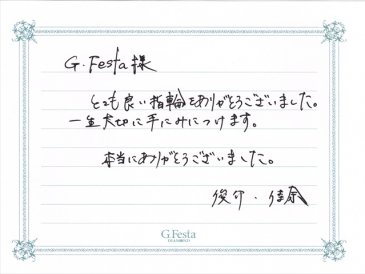 G.Festa様
とても良い指輪をありがとうございました。
一生大切に手にみにつけます。
本当にありがとうございました。
俊介・佳奈
G.Festa